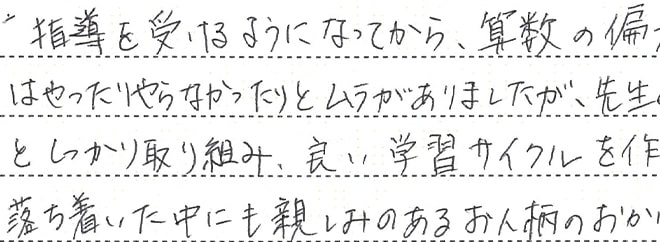 指導を受けるようになってから、算数の偏
はやったりやらなかったりとムラがありましたが、先生
としっかり取り組み、良い学習サイクルを作
落ち着いた中にも親しみのあるお人柄のおか